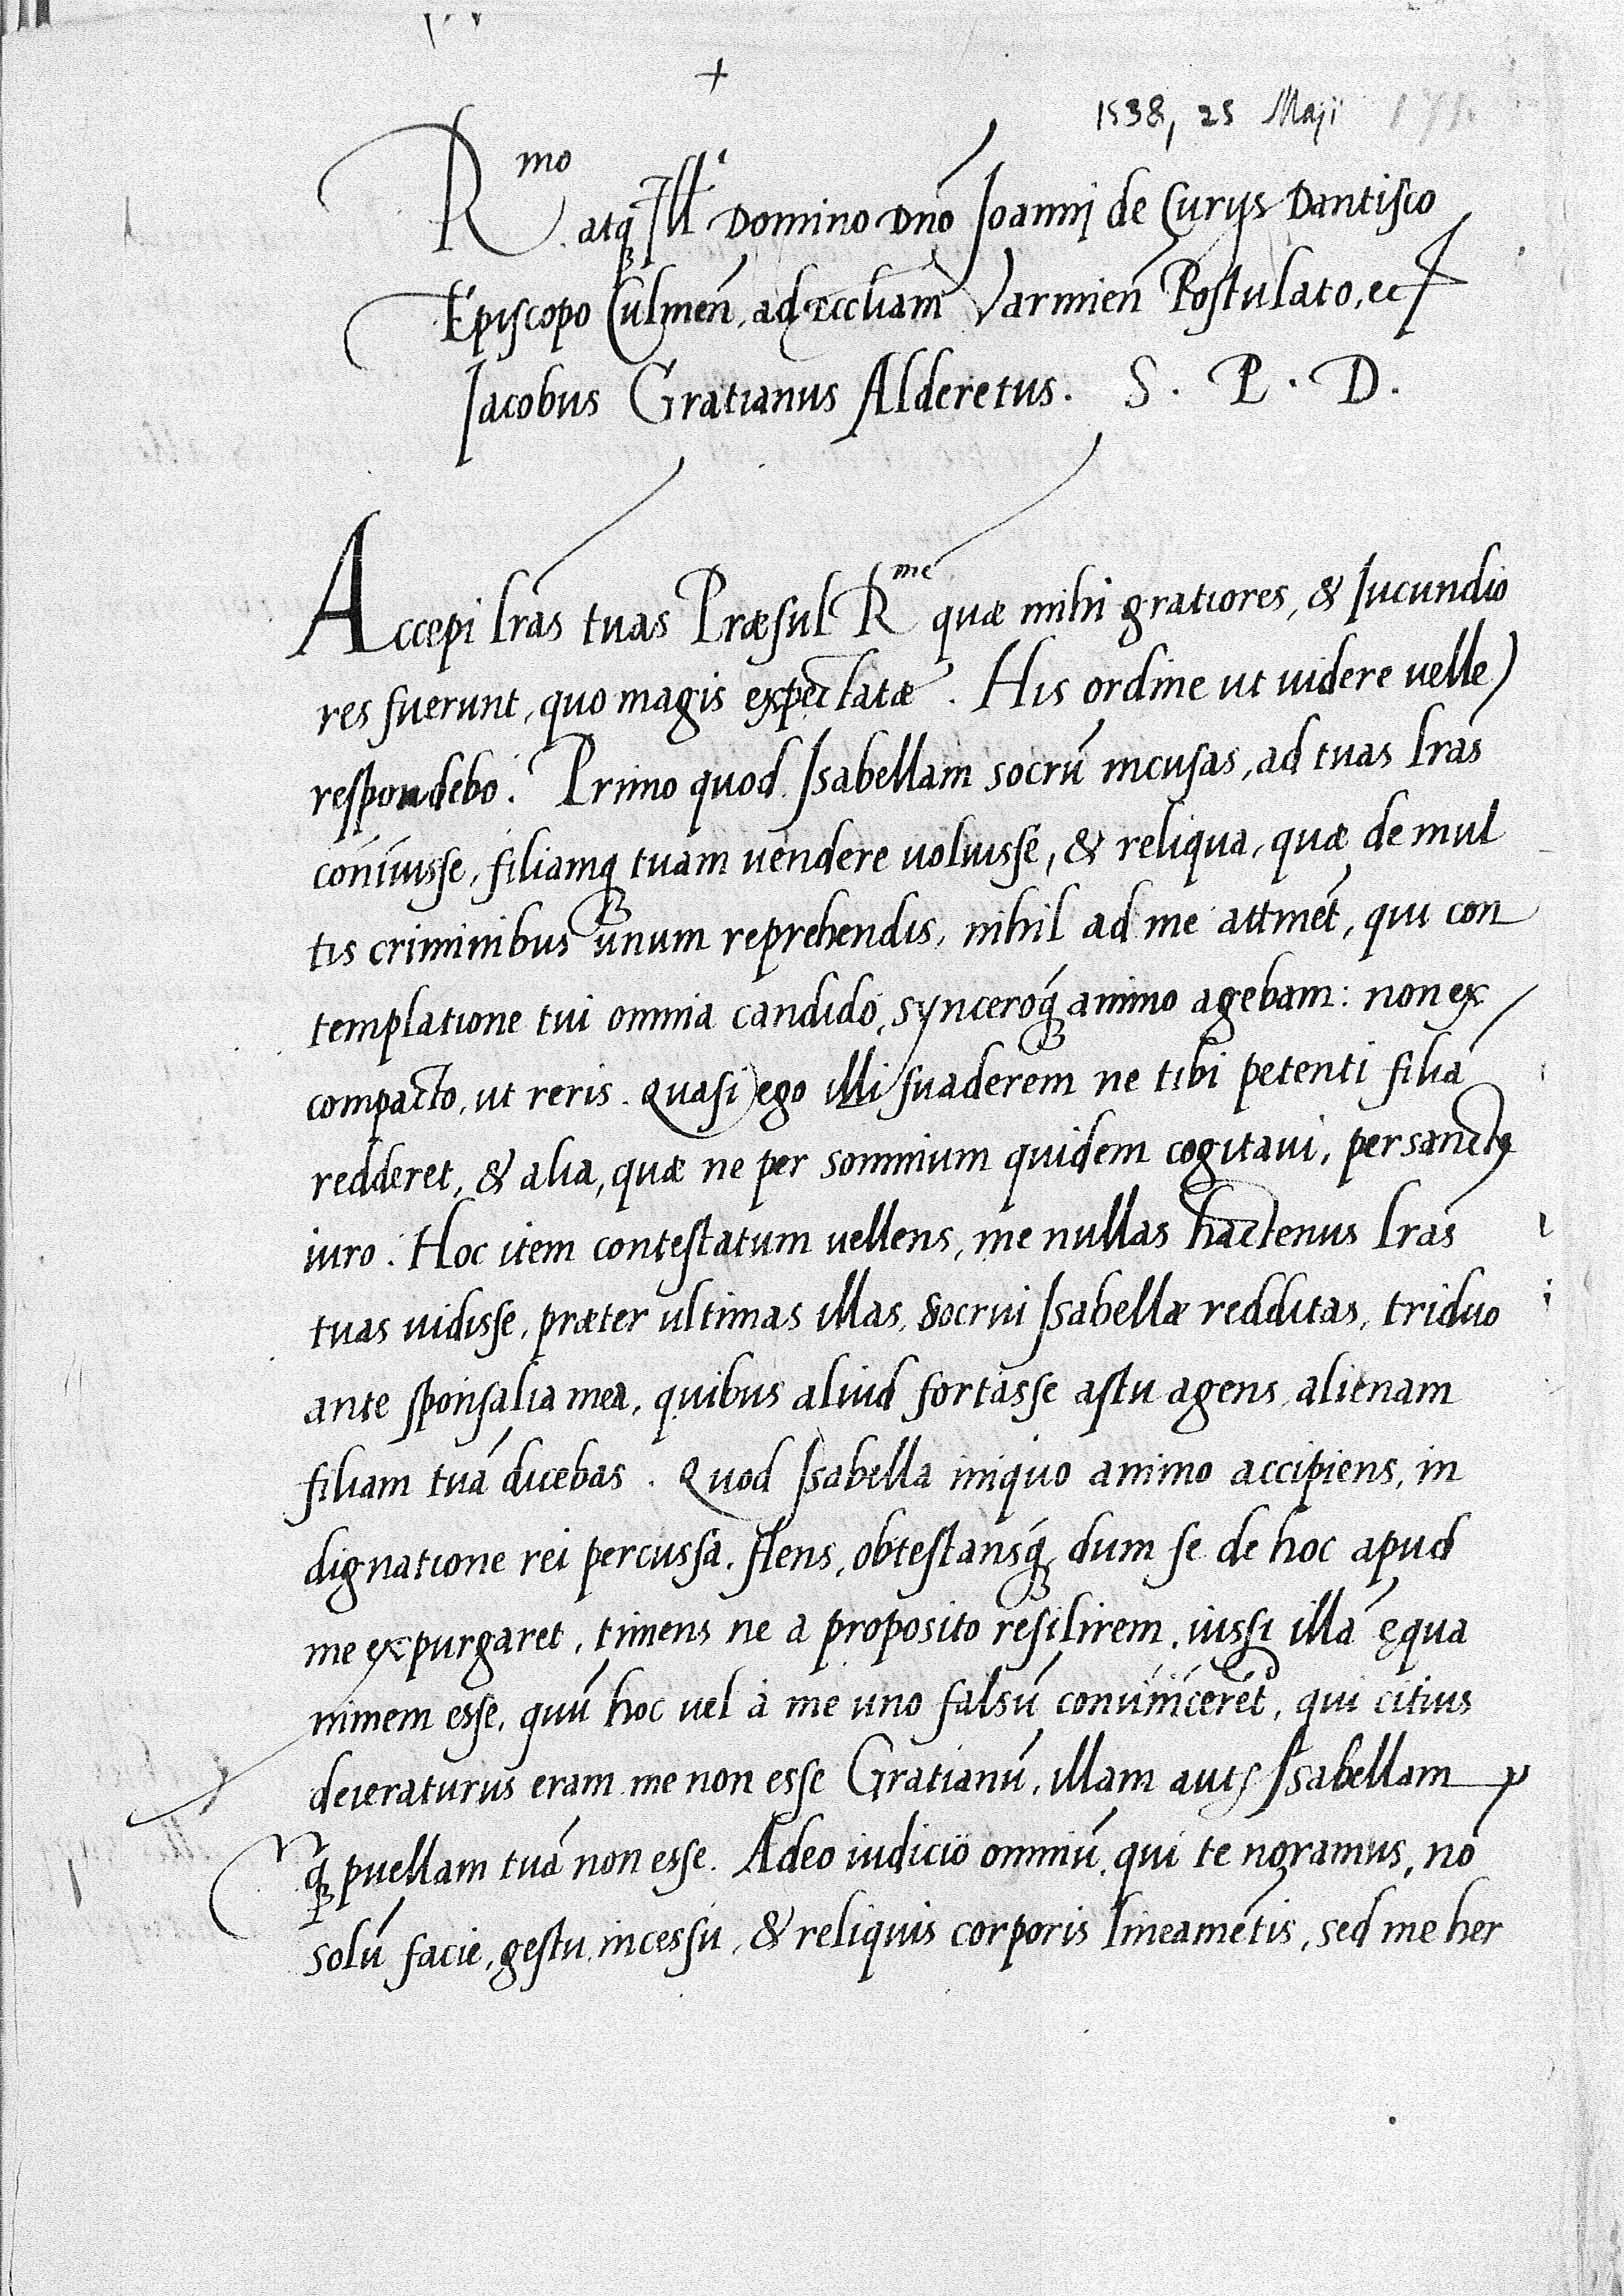 +
1538, 25 Maji
Rmo atq Ill Domino Dno Joannj de Curijs Dantisco
Episcopo Culmen̄, ad Eccliam Varmien̄ Postulato, etc
Jacobus Gratianus Alderetus. S. P. D.
Accepi lras tuas Præsul Rme quæ mihi gratiores, & Jucundio
res fuerunt, quo magis expectatæ. His ordine ut uidere uelle
respondebo. Primo quod Jsabellam socrū incusas, ad tuas lras
coniuisse, filiamq tuam uendere uoluisse, & reliqua, quæ de mul
tis criminibus unum reprehendis, nihil ad me attinēt, qui con
templatione tui omnia candido, synceroq animo agebam: non ex
compacto, ut reris. Quasi ego illi suaderem ne tibi petenti filiā
redderet, & alia, quæ ne per somnium quidem cogitaui, persancte
iuro. Hoc item contestatum uellens, me nullas hactenus lras
tuas uidisse, præter ultimas illas, socrui Jsabellæ redditas, triduo
ante sponsalia mea, quibus aliud fortasse astu agens, alienam
filiam tuā dicebas. Quod Jsabella iniquo animo accipiens, in
dignatione rei percussa. flens, obtestansq, dum se de hoc apud
me expurgaret, timens ne a proposito resilirem, iussi illā ęqua
nimem esse, quū hoc uel à me uno falsū conuinceret, qui citius
deieraturus eram me non esse Gratianū, illam aut Jsabellam
q puellam tuā non esse. Adeo iudicio omniū, qui te noramus, nō
solū facie, gestu, incessu, & reliquis corporis lineamētis, sed me her